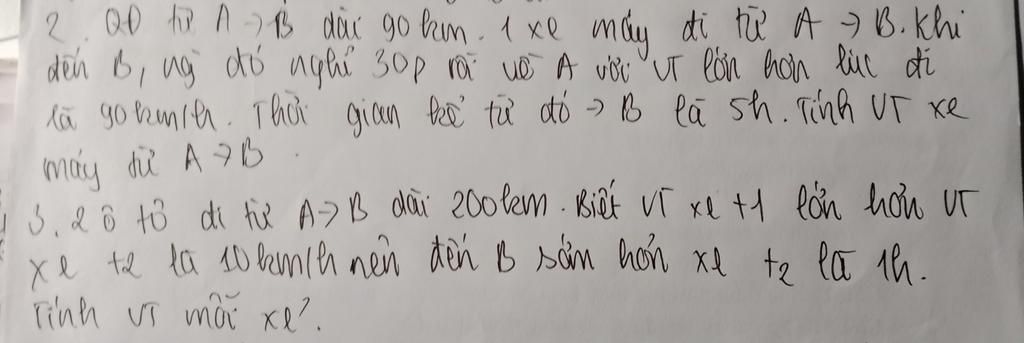 2. QĐ từ A → B dài 90km. 1 xe máy đi từ A → B. Khi
đến B, ng đó nghỉ 30p rồi về A với VT lớn hơn lúc đi
là 90km/h. Thời gian kể từ đó → B là 5h. Tính VT xe
máy từ A → B.
3. 2 ô tô đi từ A → B dài 200km. Biết VT xe t1 lớn hơn VT
xe t2 là 10km/h nên đến B sớm hơn xe t2 là 1h.
Tính VT mỗi xe?